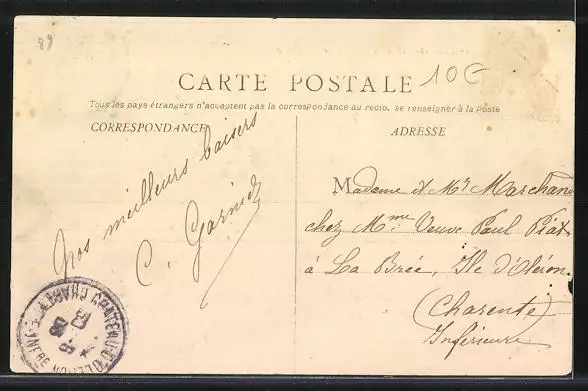 89
CARTE POSTALE
10G
Tous les pays étrangers n'acceptent pas la correspondance au recto. se renseigner à la Poste
CORRESPONDANCE
ADRESSE
meilleurs baisers
C. Garnier
Madame et Mr Marchan
chez Mme Veuve Paul Piat
à La Brée, Ile d'Oléron
(Charente)
Inférieure